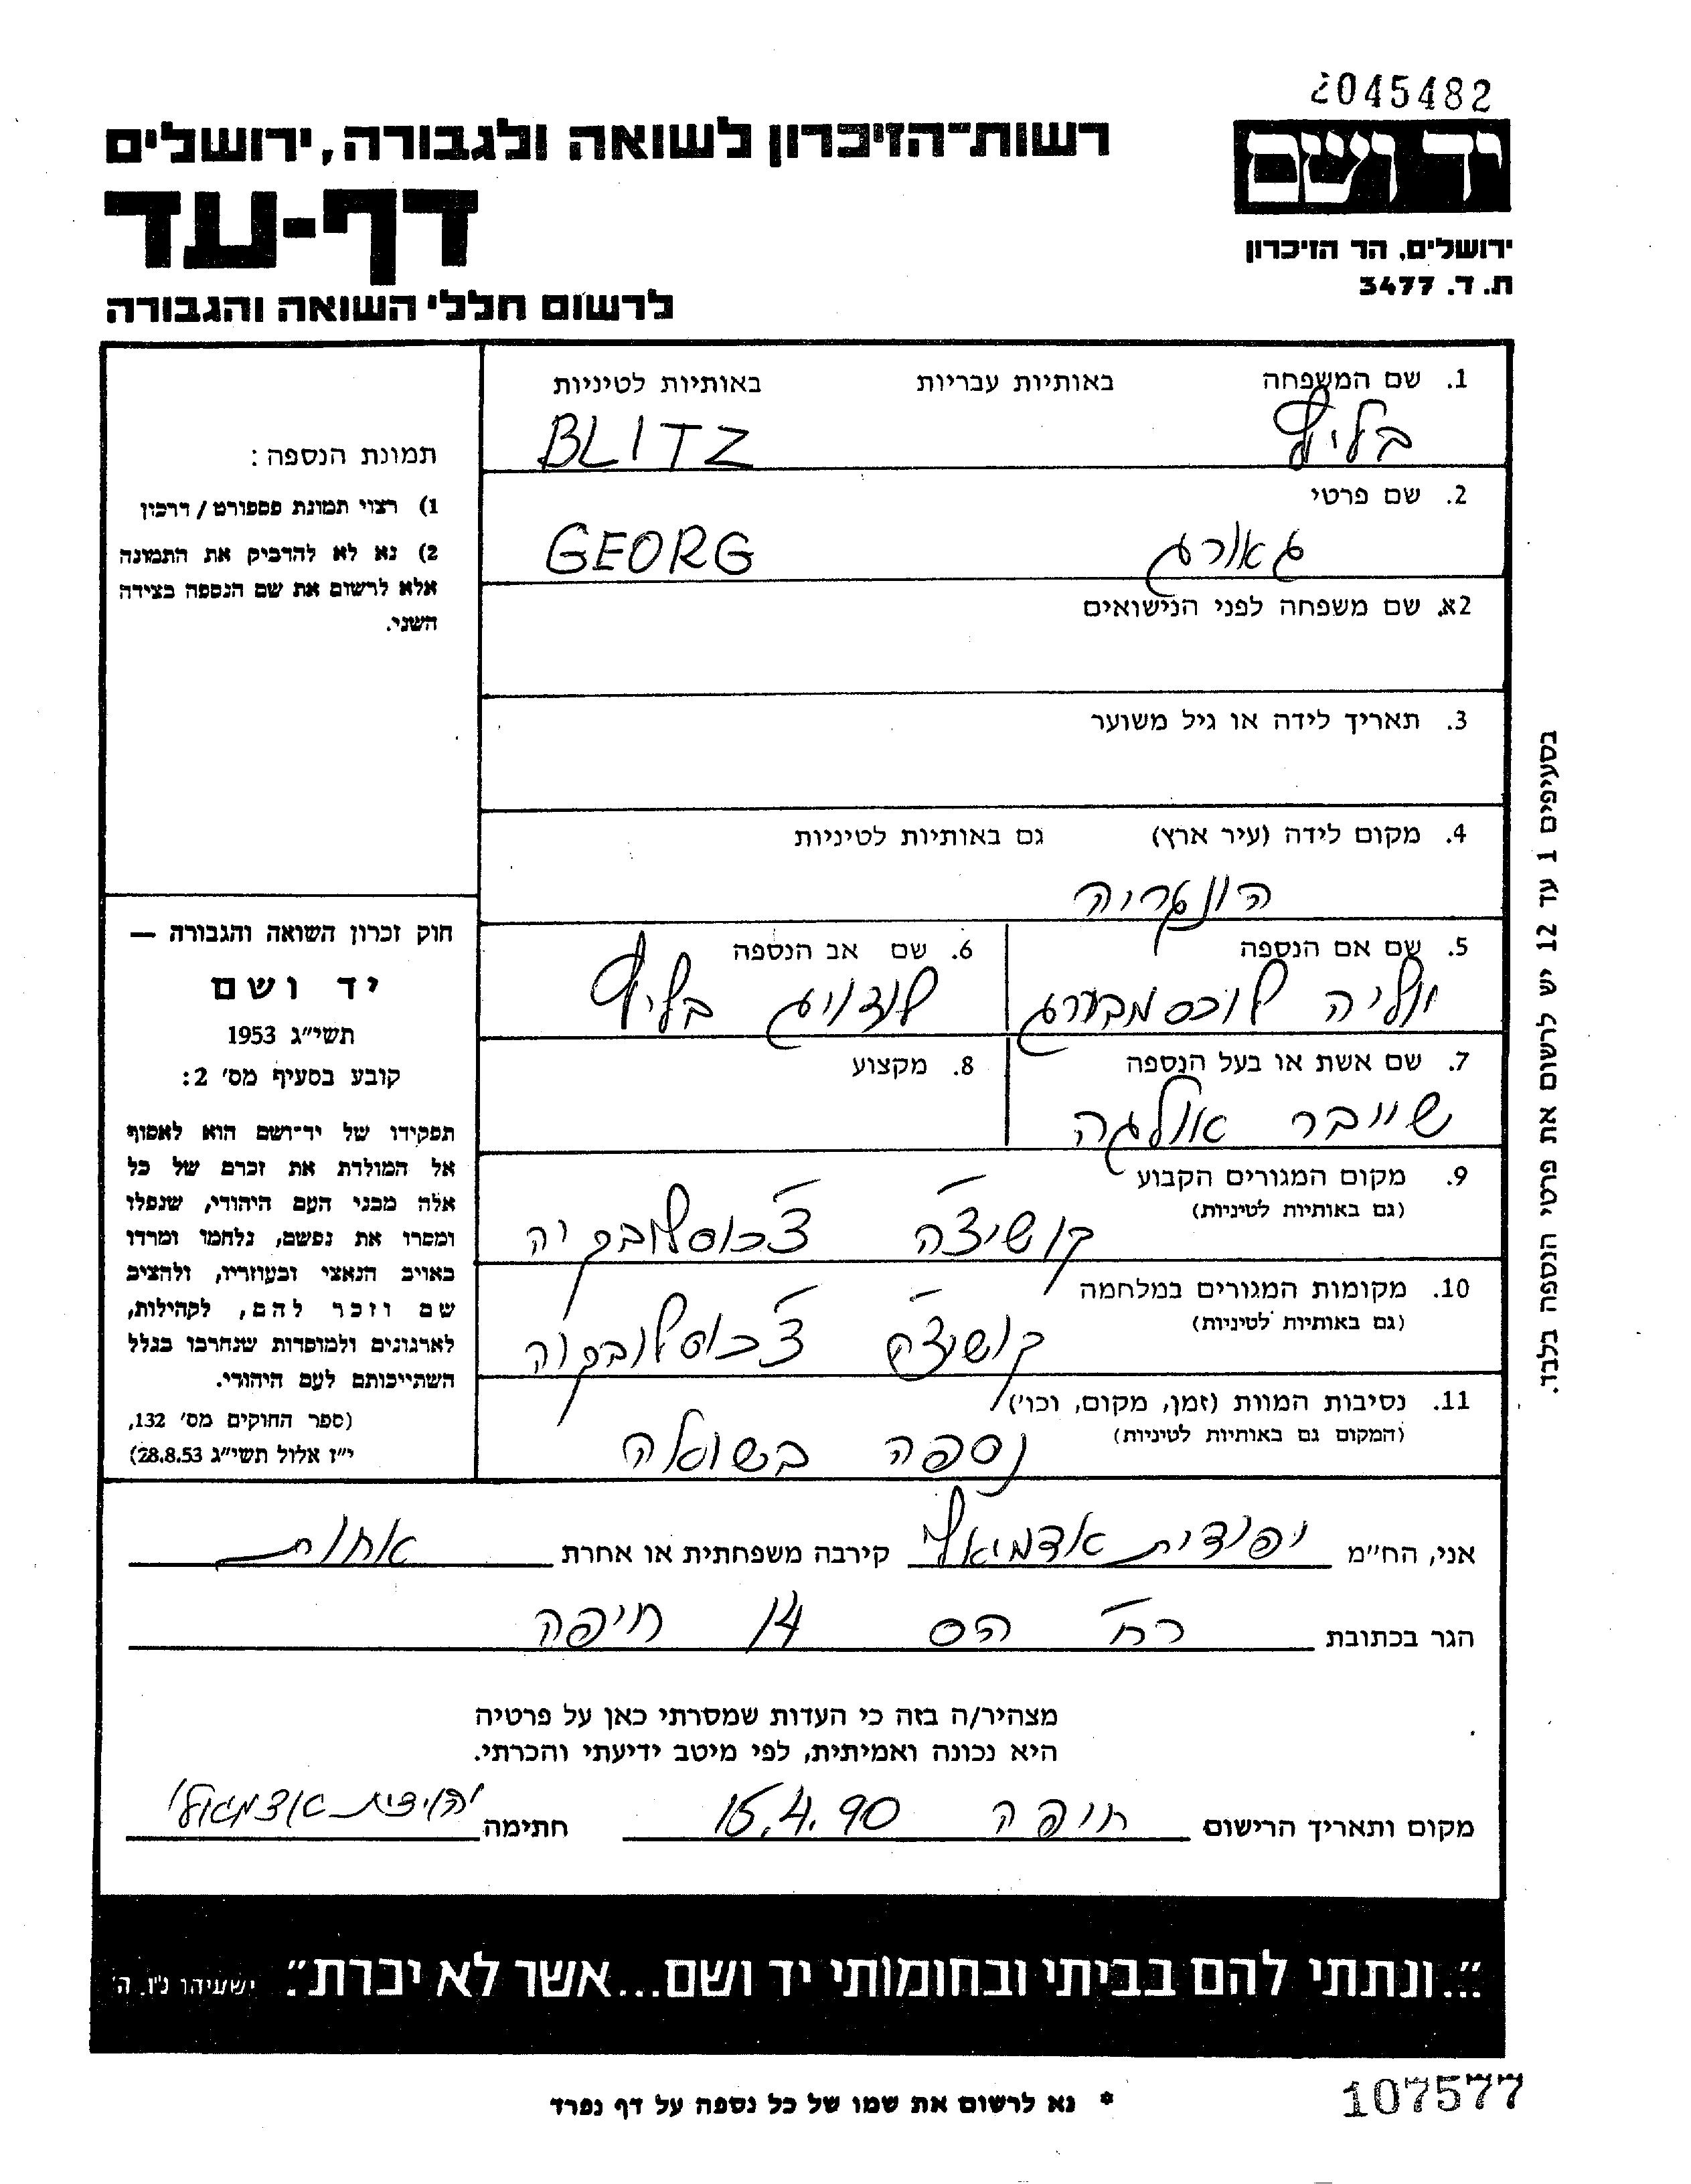 2045482
יד ושם
ירושלים, הר הזיכרון
ת. ד. 3477
רשות־הזיכרון לשואה ולגבורה, ירושלים
דף-עד
לרשום חללי השואה והגבורה
1. שם המשפחה באותיות עבריות באותיות לטיניות
בליץ BLITZ
2. שם פרטי
גאורג GEORG
2א. שם משפחה לפני הנישואים
3. תאריך לידה או גיל משוער
4. מקום לידה (עיר ארץ) גם באותיות לטיניות
הונגריה
5. שם אם הנספה 6. שם אב הנספה
יוליה לוכסמבורג לודויג בליץ
7. שם אשת או בעל הנספה 8. מקצוע
שייבר אולגה
9. מקום המגורים הקבוע
(גם באותיות לטיניות)
קושיצה צ'כוסלובקיה
10. מקומות המגורים במלחמה
(גם באותיות לטיניות)
קושיצה צ'כוסלובקיה
11. נסיבות המוות (זמן, מקום, וכו')
(המקום גם באותיות לטיניות)
נספה בשואה
תמונת הנספה:
1) רצוי תמונת פספורט / דרכון
2) נא לא להדביק את התמונה
אלא לרשום את שם הנספה בצידה
השני.
חוק זכרון השואה והגבורה —
יד ושם
תשי"ג 1953
קובע בסעיף מס' 2:
תפקידו של יד־ושם הוא לאסוף
אל המולדת את זכרם של כל
אלה מבני העם היהודי, שנפלו
ומסרו את נפשם, נלחמו ומרדו
באויב הנאצי ובעוזריו, ולהציב
שם וזכר להם, לקהילות,
לארגונים ולמוסדות שנחרבו בגלל
השתייכותם לעם היהודי.
(ספר החוקים מס' 132,
י"ז אלול תשי"ג 28.8.53)
בסעיפים 1 עד 12 יש לרשום את פרטי הנספה בלבד.
אני, הח"מ קירבה משפחתית או אחרת אחות
הגר בכתובת רח' הס 14 חיפה
מצהיר/ה בזה כי העדות שמסרתי כאן על פרטיה
היא נכונה ואמיתית, לפי מיטב ידיעתי והכרתי.
מקום ותאריך הרישום חיפה 15.4.90 חתימה
"..ונתתי להם בביתי ובחומותי יד ושם...אשר לא יכרת". ישעיהו נ"ו, ה'
* נא לרשום את שמו של כל נספה על דף נפרד
107577